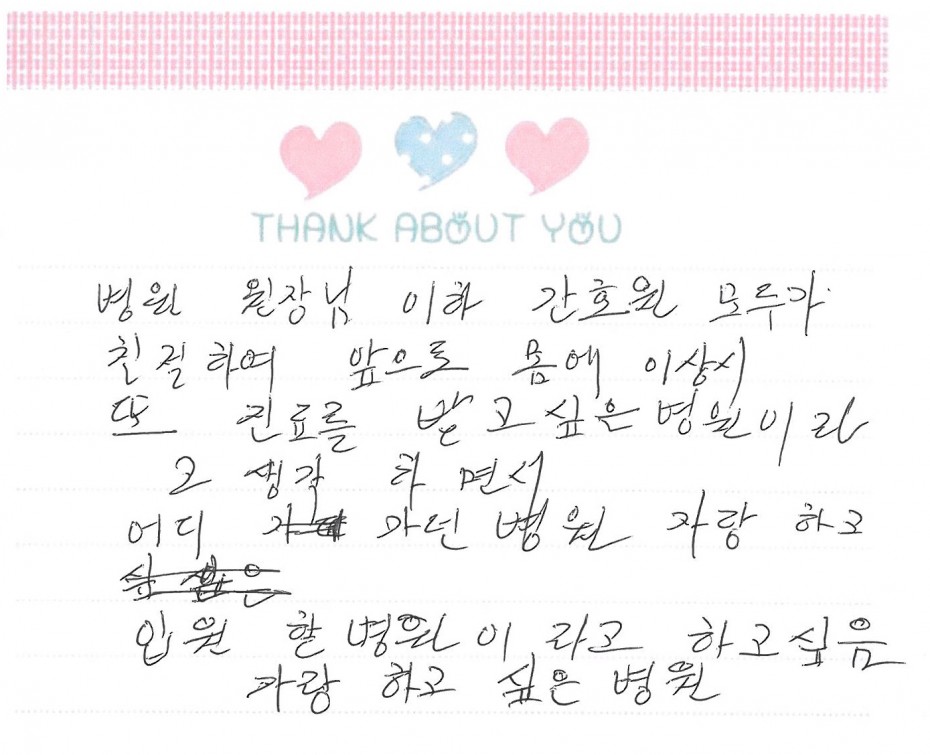 THANK ABOUT YOU
병원 원장님 이하 간호원 모두가
친절하여 앞으로 몸에 이상시
또 진료를 받고 싶은 병원이라
고 생각 하면서
어디 가던 병원 자랑 하고
입원 할 병원이 라고 하고싶음
자랑 하고 싶은 병원